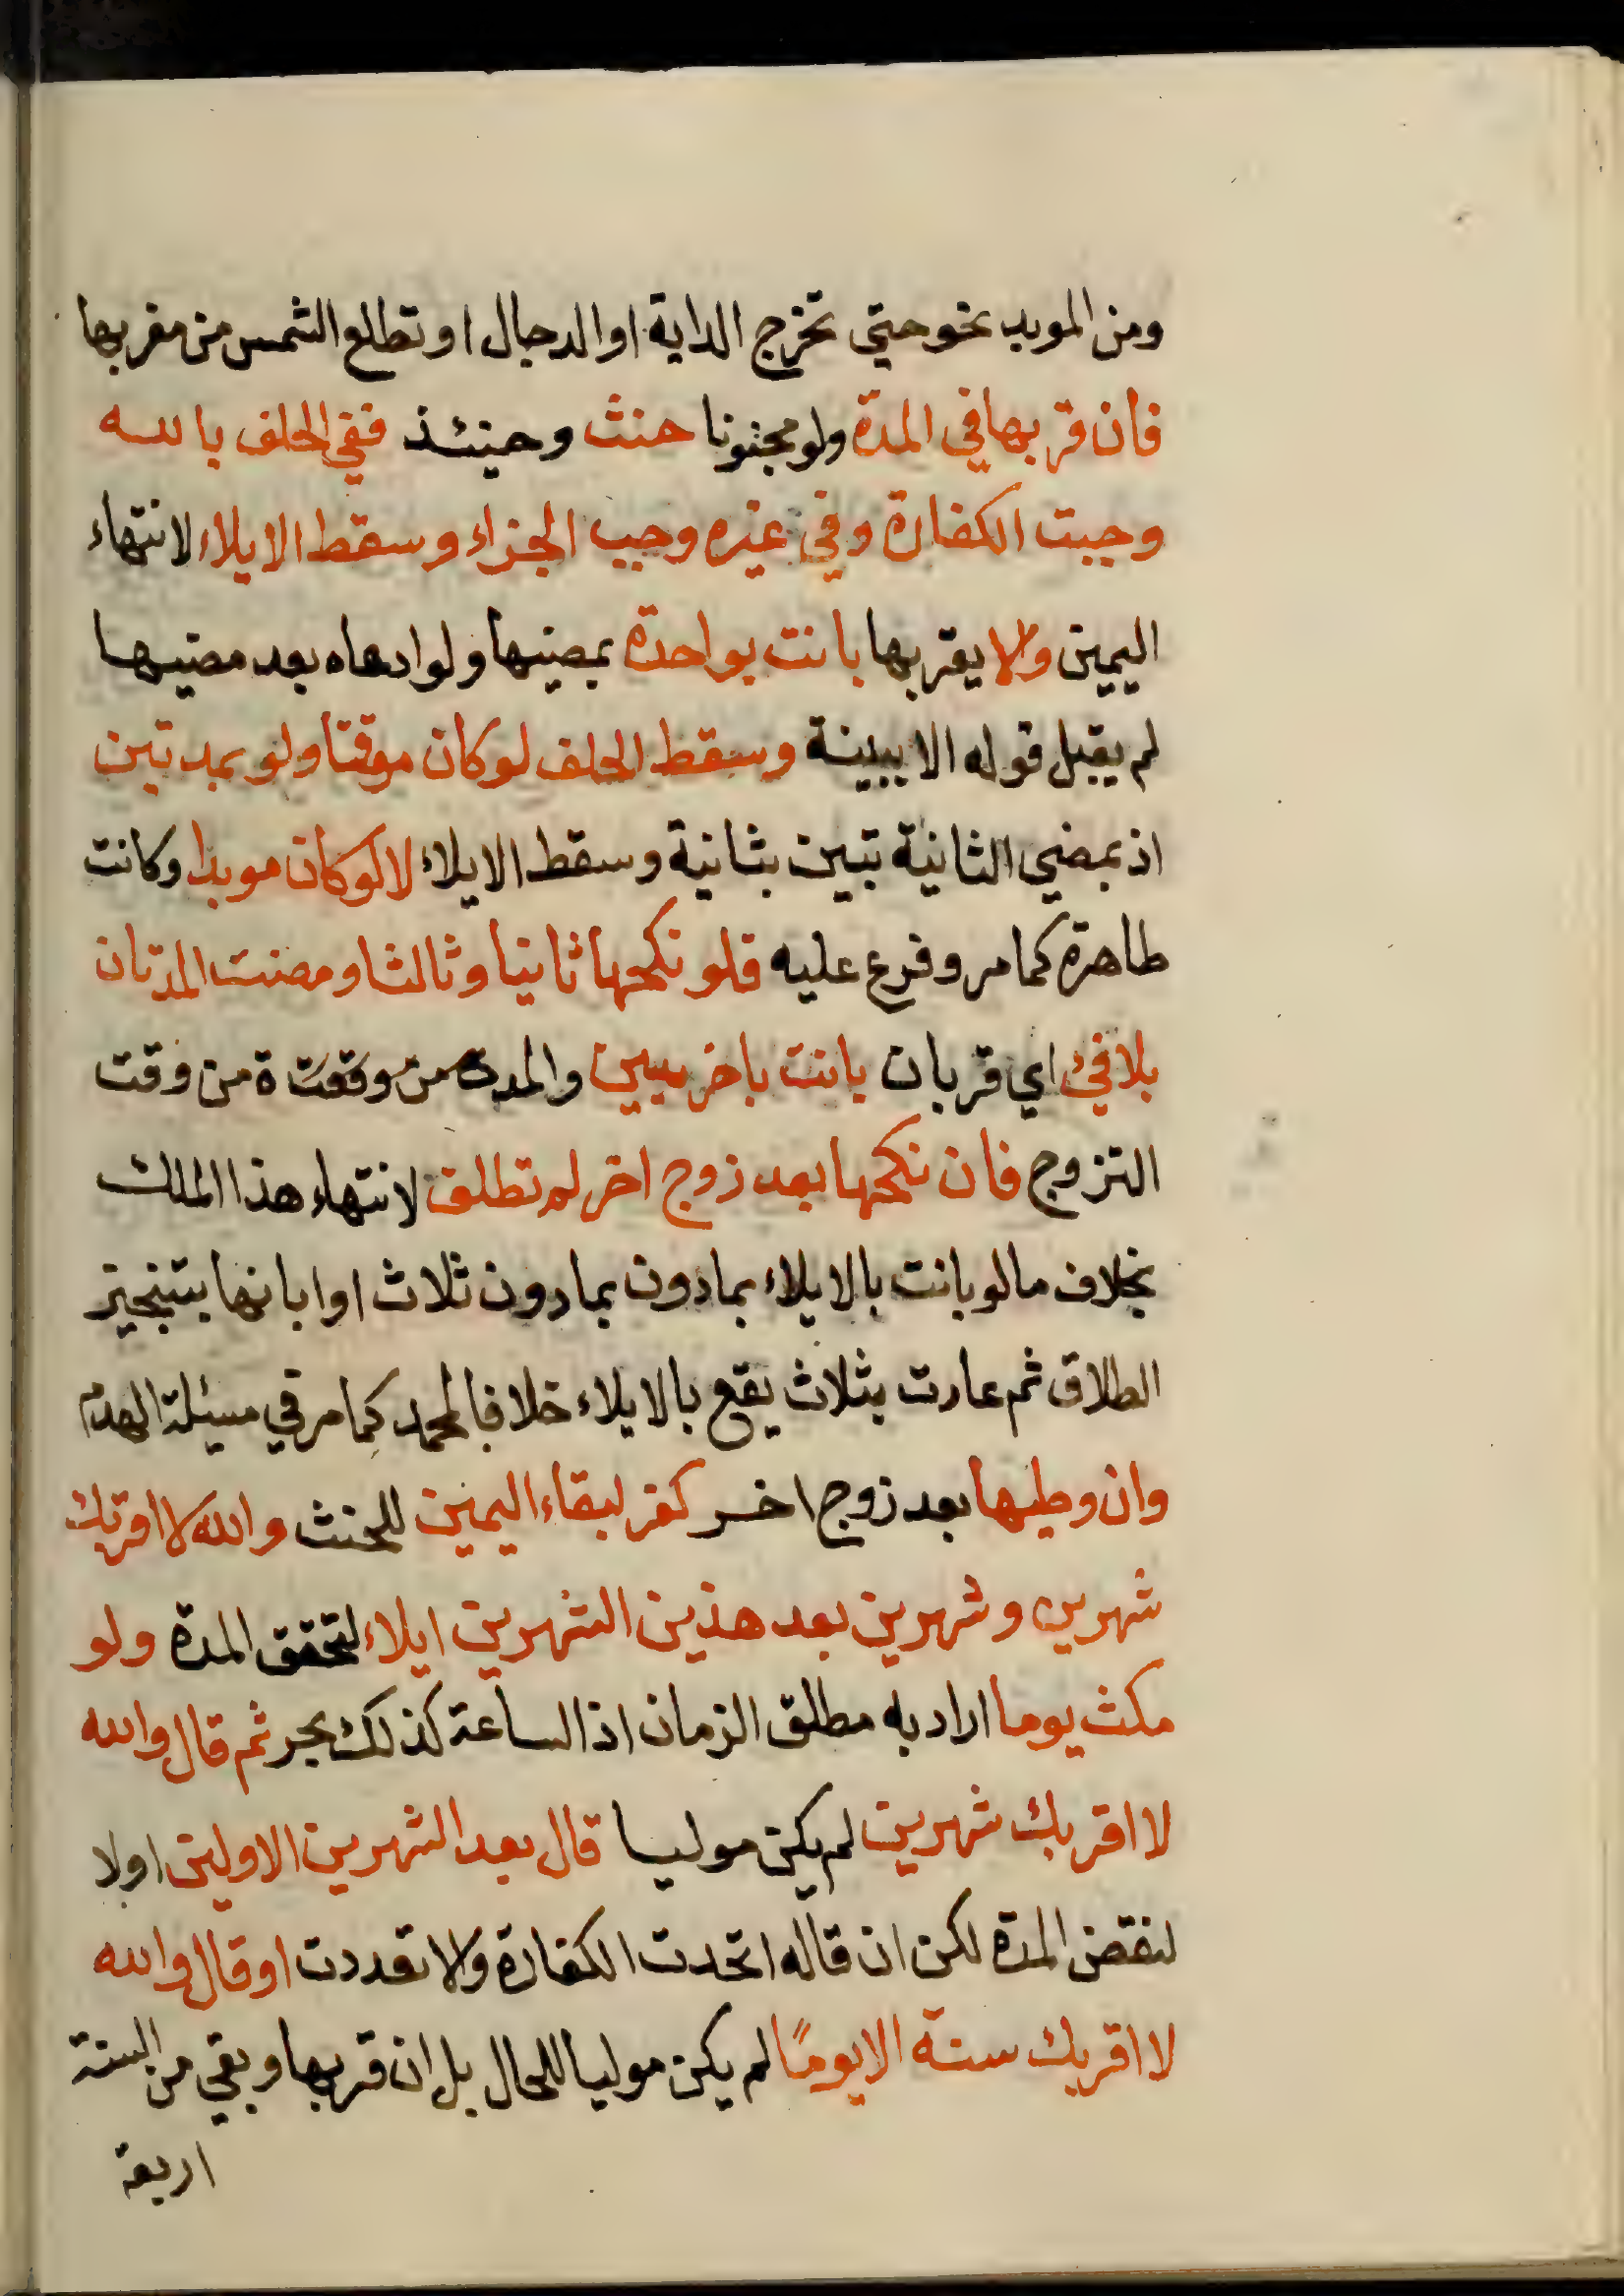 ومن الموبد نحو حتى تخرج الداية او الدجال او تطلع الشمس من مغربها
فان قربها في المدة ولو مجنونا حنث وحينئذ ففي الحلف بالله
وجبت الكفارة وفي غيره وجب الجزاء وسقط الايلاء لانتهاء
اليمين والا يقربها بانت بواحدة بمضيها ولو ادعاه بعد مضيها
لم يقبل قوله الا ببينة وسقط الحلف لو كان موقتا ولو بمدتين
اذ بمضي الثانية تبين بثانية وسقط الايلاء لا لو كان موبدا وكانت
طاهرة كما مر وفرع عليه فلو نكحها ثانيا وثالثا ومضت المدتان
بلا فئ اي قربان بانت باخريين والمدة من وقت من وقت
التزوج فان نكحها بعد زوج اخر لم تطلق لانتهاء هذا الملك
بخلاف ما لو بانت بالايلاء بما دون بما دون ثلاث او ابانها بتنجيز
الطلاق ثم عادت بثلاث يقع بالايلاء خلافا لمحمد كما مر في مسئلة الهدم
وان وطيها بعد زوج اخر كفر لبقاء اليمين للحنث والله لا اقربك
شهرين وشهرين بعد هذين الشهرين ايلاء لتحقق المدة ولو
مكث يوما اراد به مطلق الزمان اذ الساعة كذلك بحر ثم قال والله
لا اقربك شهرين لم يكن موليا قال بعد الشهرين الاولين اولا
لنقض المدة لكن ان قاله اتحدت الكفارة والا تعددت او قال والله
لا اقربك سنة الا يوماً لم يكن موليا للحال بل ان قربها وبقي من السنة
اربعة